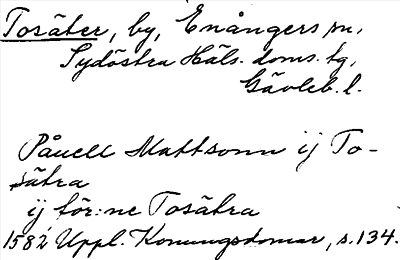 Tosäter, by, Enångers sn,
Sydöstra Häls. doms. tg,
Gävleb. l.
Påuell Mattsonn ij To-
sätra
ij för:ne Tosätra
1582 Uppl. Konungsdomar, s. 134.